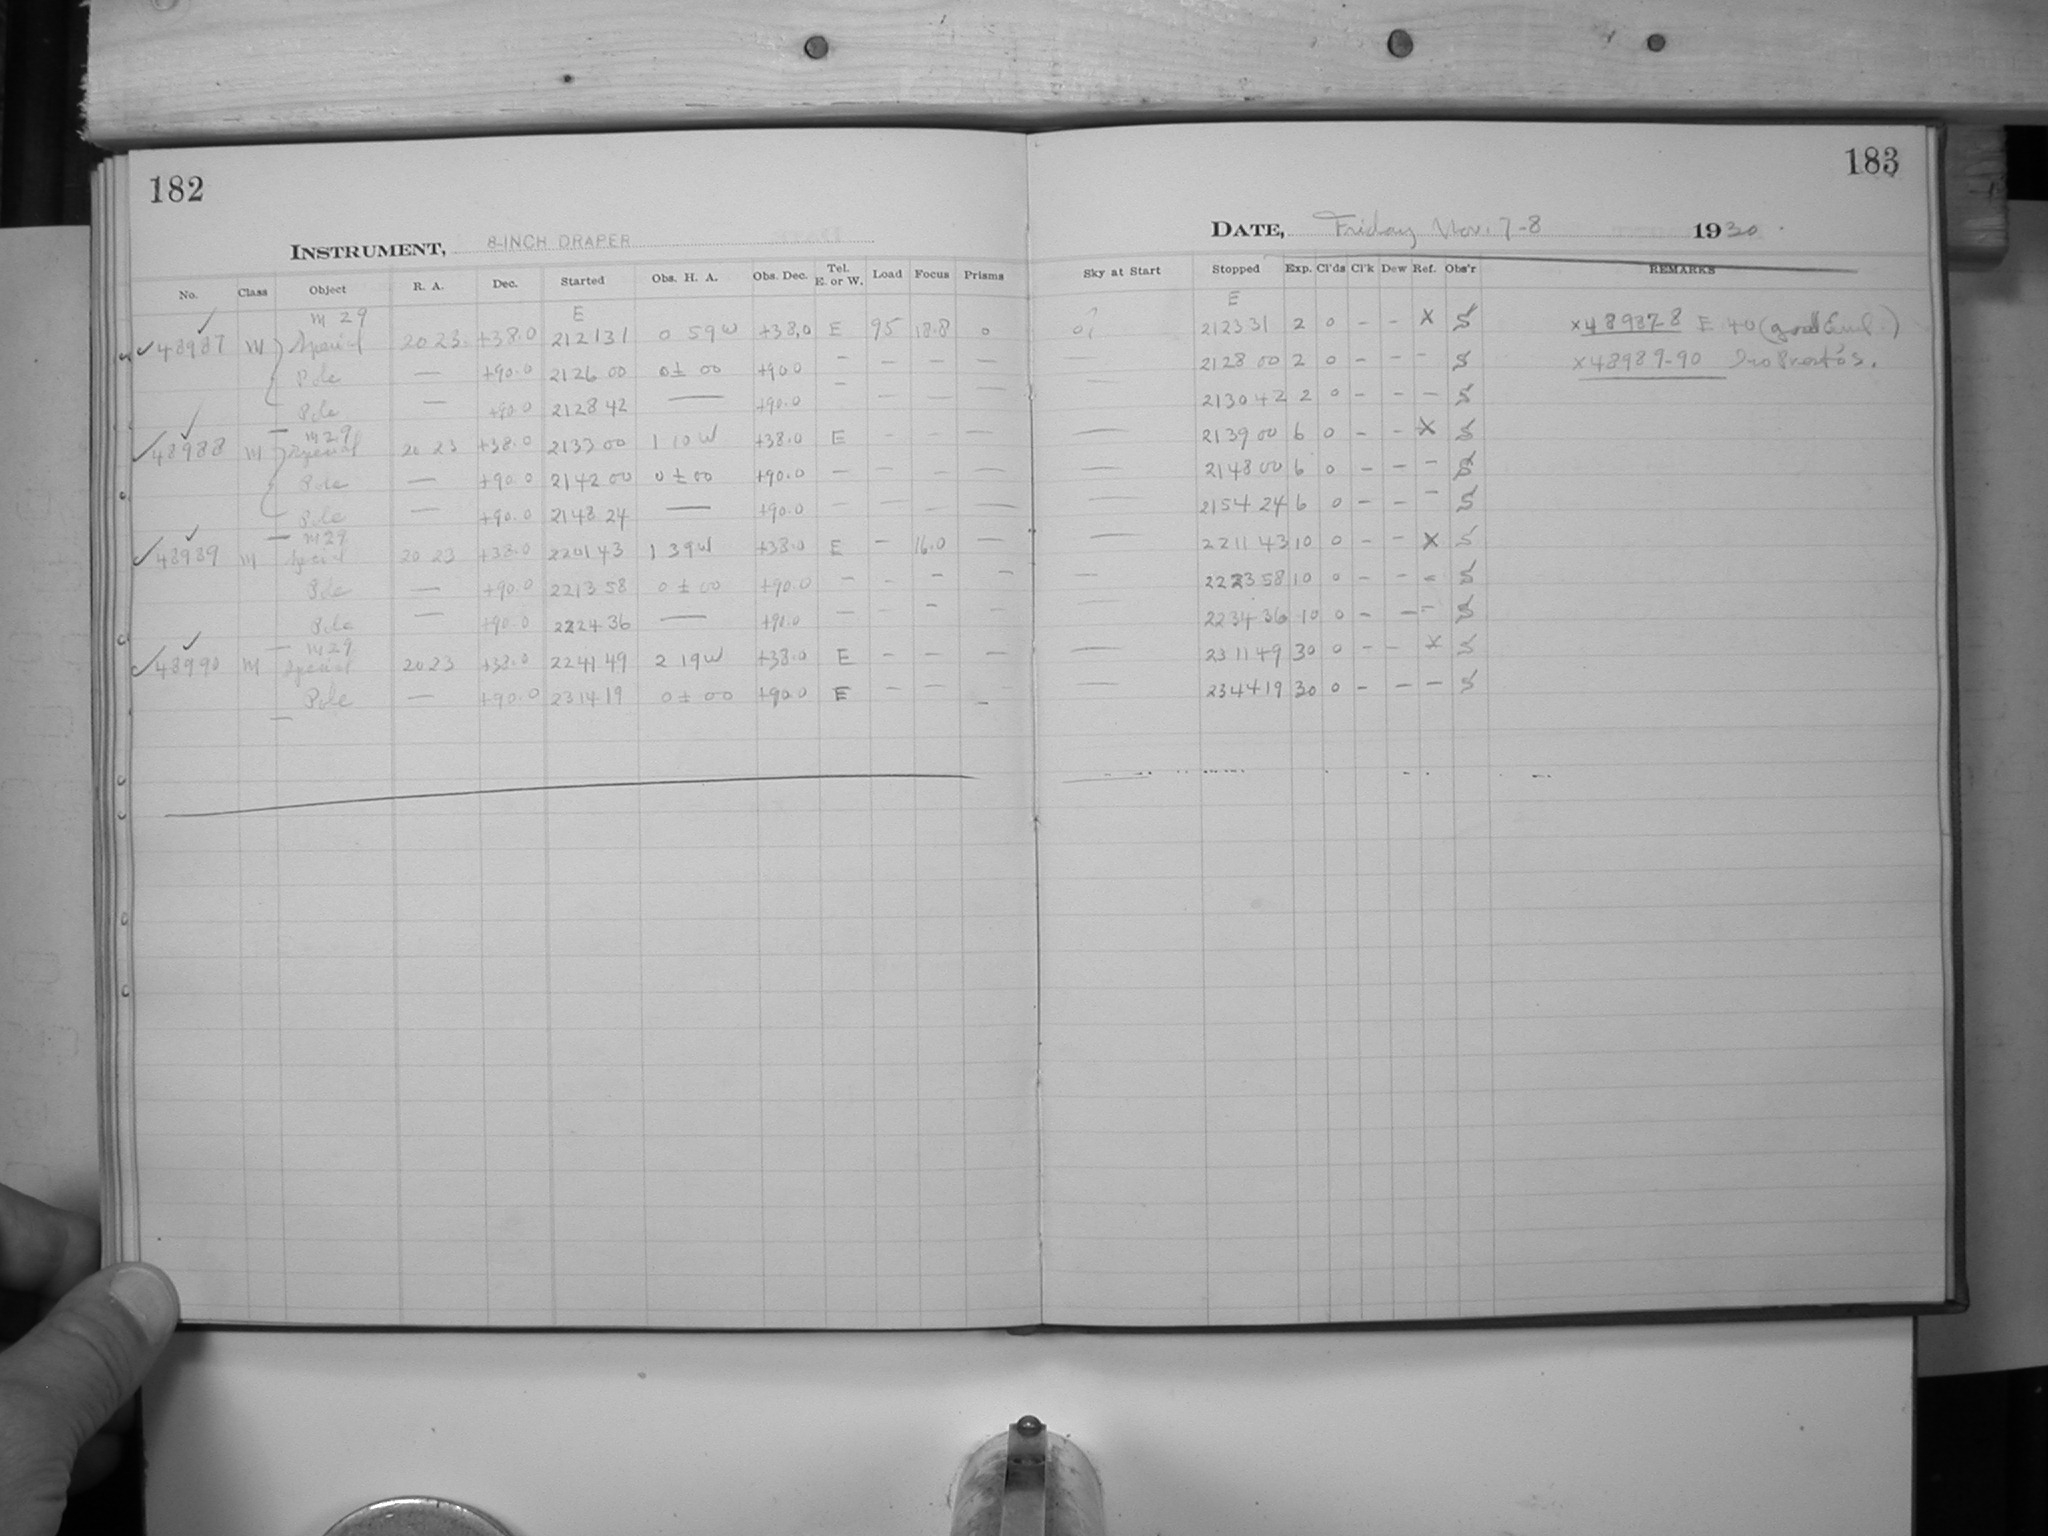 182
INSTRUMENT, 8-INCH DRAPER
No. Class Object R. A. Dec. Started Obs. H. A. Obs. Dec. Tel. E. or W. Load Focus Prisms
M 29 E
48987 M Special 20 23 +38.0 21 21 31 0 59 W +38.0 E 95 18.8 0
Pole — +90.0 21 26 00 0 ± 00 +90.0 — — — —
Pole — +90.0 21 28 42 — +90.0 — — — —
M 29
48988 M Special 20 23 +38.0 21 33 00 1 10 W +38.0 E — — —
Pole — +90.0 21 42 00 0 ± 00 +90.0 — — — —
Pole — +90.0 21 48 24 — +90.0 — — — —
M 29
48989 M Special 20 23 +38.0 22 01 43 1 39 W +38.0 E — 16.0 —
Pole — +90.0 22 13 58 0 ± 00 +90.0 — — — —
Pole — +90.0 22 24 36 — +90.0 — — — —
M 29
48990 M Special 20 23 +38.0 22 41 49 2 19 W +38.0 E — — —
Pole — +90.0 23 14 19 0 ± 00 +90.0 E — — —
183
DATE, Friday Nov. 7-8 1930.
Sky at Start Stopped Exp. Cl'ds Cl'k Dew Ref. Obs'r REMARKS
E
21 23 31 2 0 – – X S x48987-8 E 40 (good Emul.)
— 21 28 00 2 0 – – – S x48989-90
— 21 30 42 2 0 – – – S
— 21 39 00 6 0 – – X S
— 21 48 00 6 0 – – – S
— 21 54 24 6 0 – – – S
— 22 11 43 10 0 – – X S
— 22 23 58 10 0 – – – S
— 22 34 36 10 0 – – – S
— 23 11 49 30 0 – – X S
— 23 44 19 30 0 – – – S